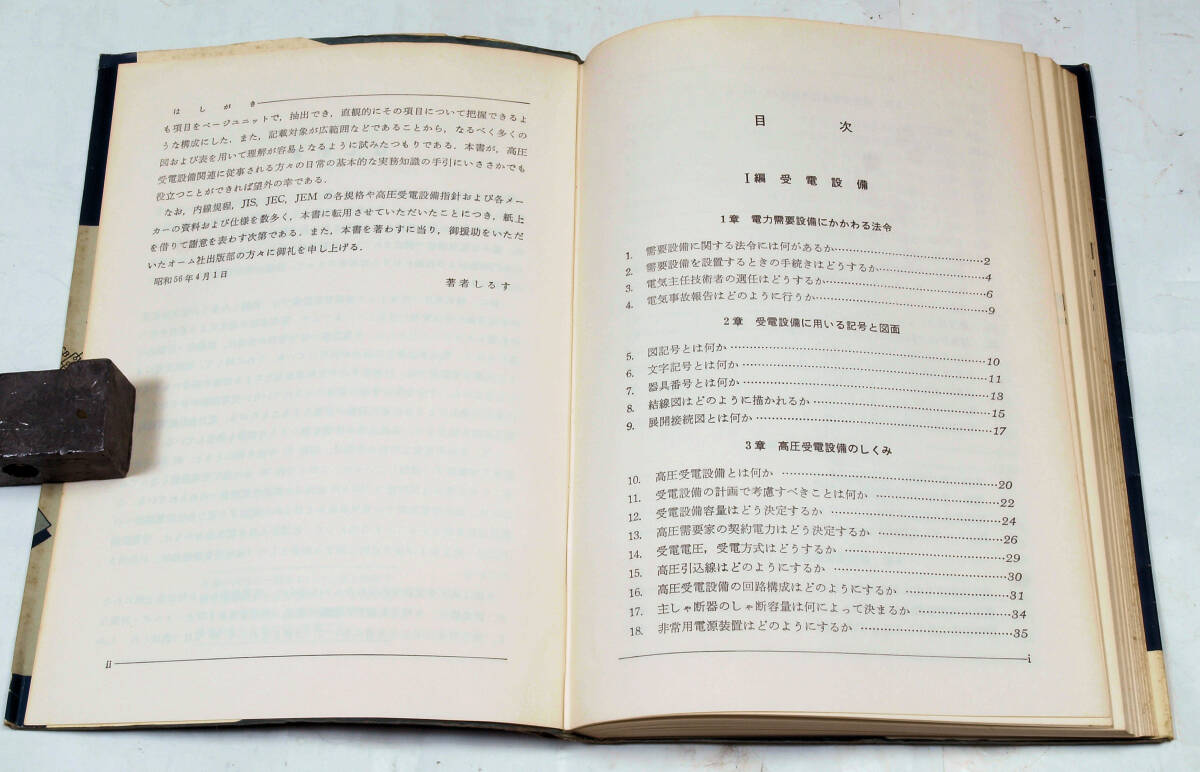 はしがき
も項目をページユニットで，抽出でき，直観的にその項目について把握できるよ
うな構成にした．また，記載対象が広範囲などであることから，なるべく多くの
図および表を用いて理解が容易となるように試みたつもりである．本書が，高圧
受電設備関連に従事される方々の日常の基本的な実務知識の手引にいささかでも
役立つことができれば望外の幸である．
なお，内線規程，JIS，JEC，JEM の各規格や高圧受電設備指針および各メー
カーの資料および仕様を数多く，本書に転用させていただいたことにつき，紙上
を借りて謝意を表わす次第である．また，本書を著わすに当り，御援助をいただ
いたオーム社出版部の方々に御礼を申し上げる．
昭和56年4月1日
著者しるす
ii
目次
I編 受電設備
1章 電力需要設備にかかわる法令
1. 需要設備に関する法令には何があるか……2
2. 需要設備を設置するときの手続きはどうするか……4
3. 電気主任技術者の選任はどうするか……6
4. 電気事故報告はどのように行うか……9
2章 受電設備に用いる記号と図面
5. 図記号とは何か……10
6. 文字記号とは何か……11
7. 器具番号とは何か……13
8. 結線図はどのように描かれるか……15
9. 展開接続図とは何か……17
3章 高圧受電設備のしくみ
10. 高圧受電設備とは何か……20
11. 受電設備の計画で考慮すべきことは何か……22
12. 受電設備容量はどう決定するか……24
13. 高圧需要家の契約電力はどう決定するか……26
14. 受電電圧，受電方式はどうするか……29
15. 高圧引込線はどのようにするか……30
16. 高圧受電設備の回路構成はどのようにするか……31
17. 主しゃ断器のしゃ断容量は何によって決まるか……34
18. 非常用電源装置はどのようにするか……35
i